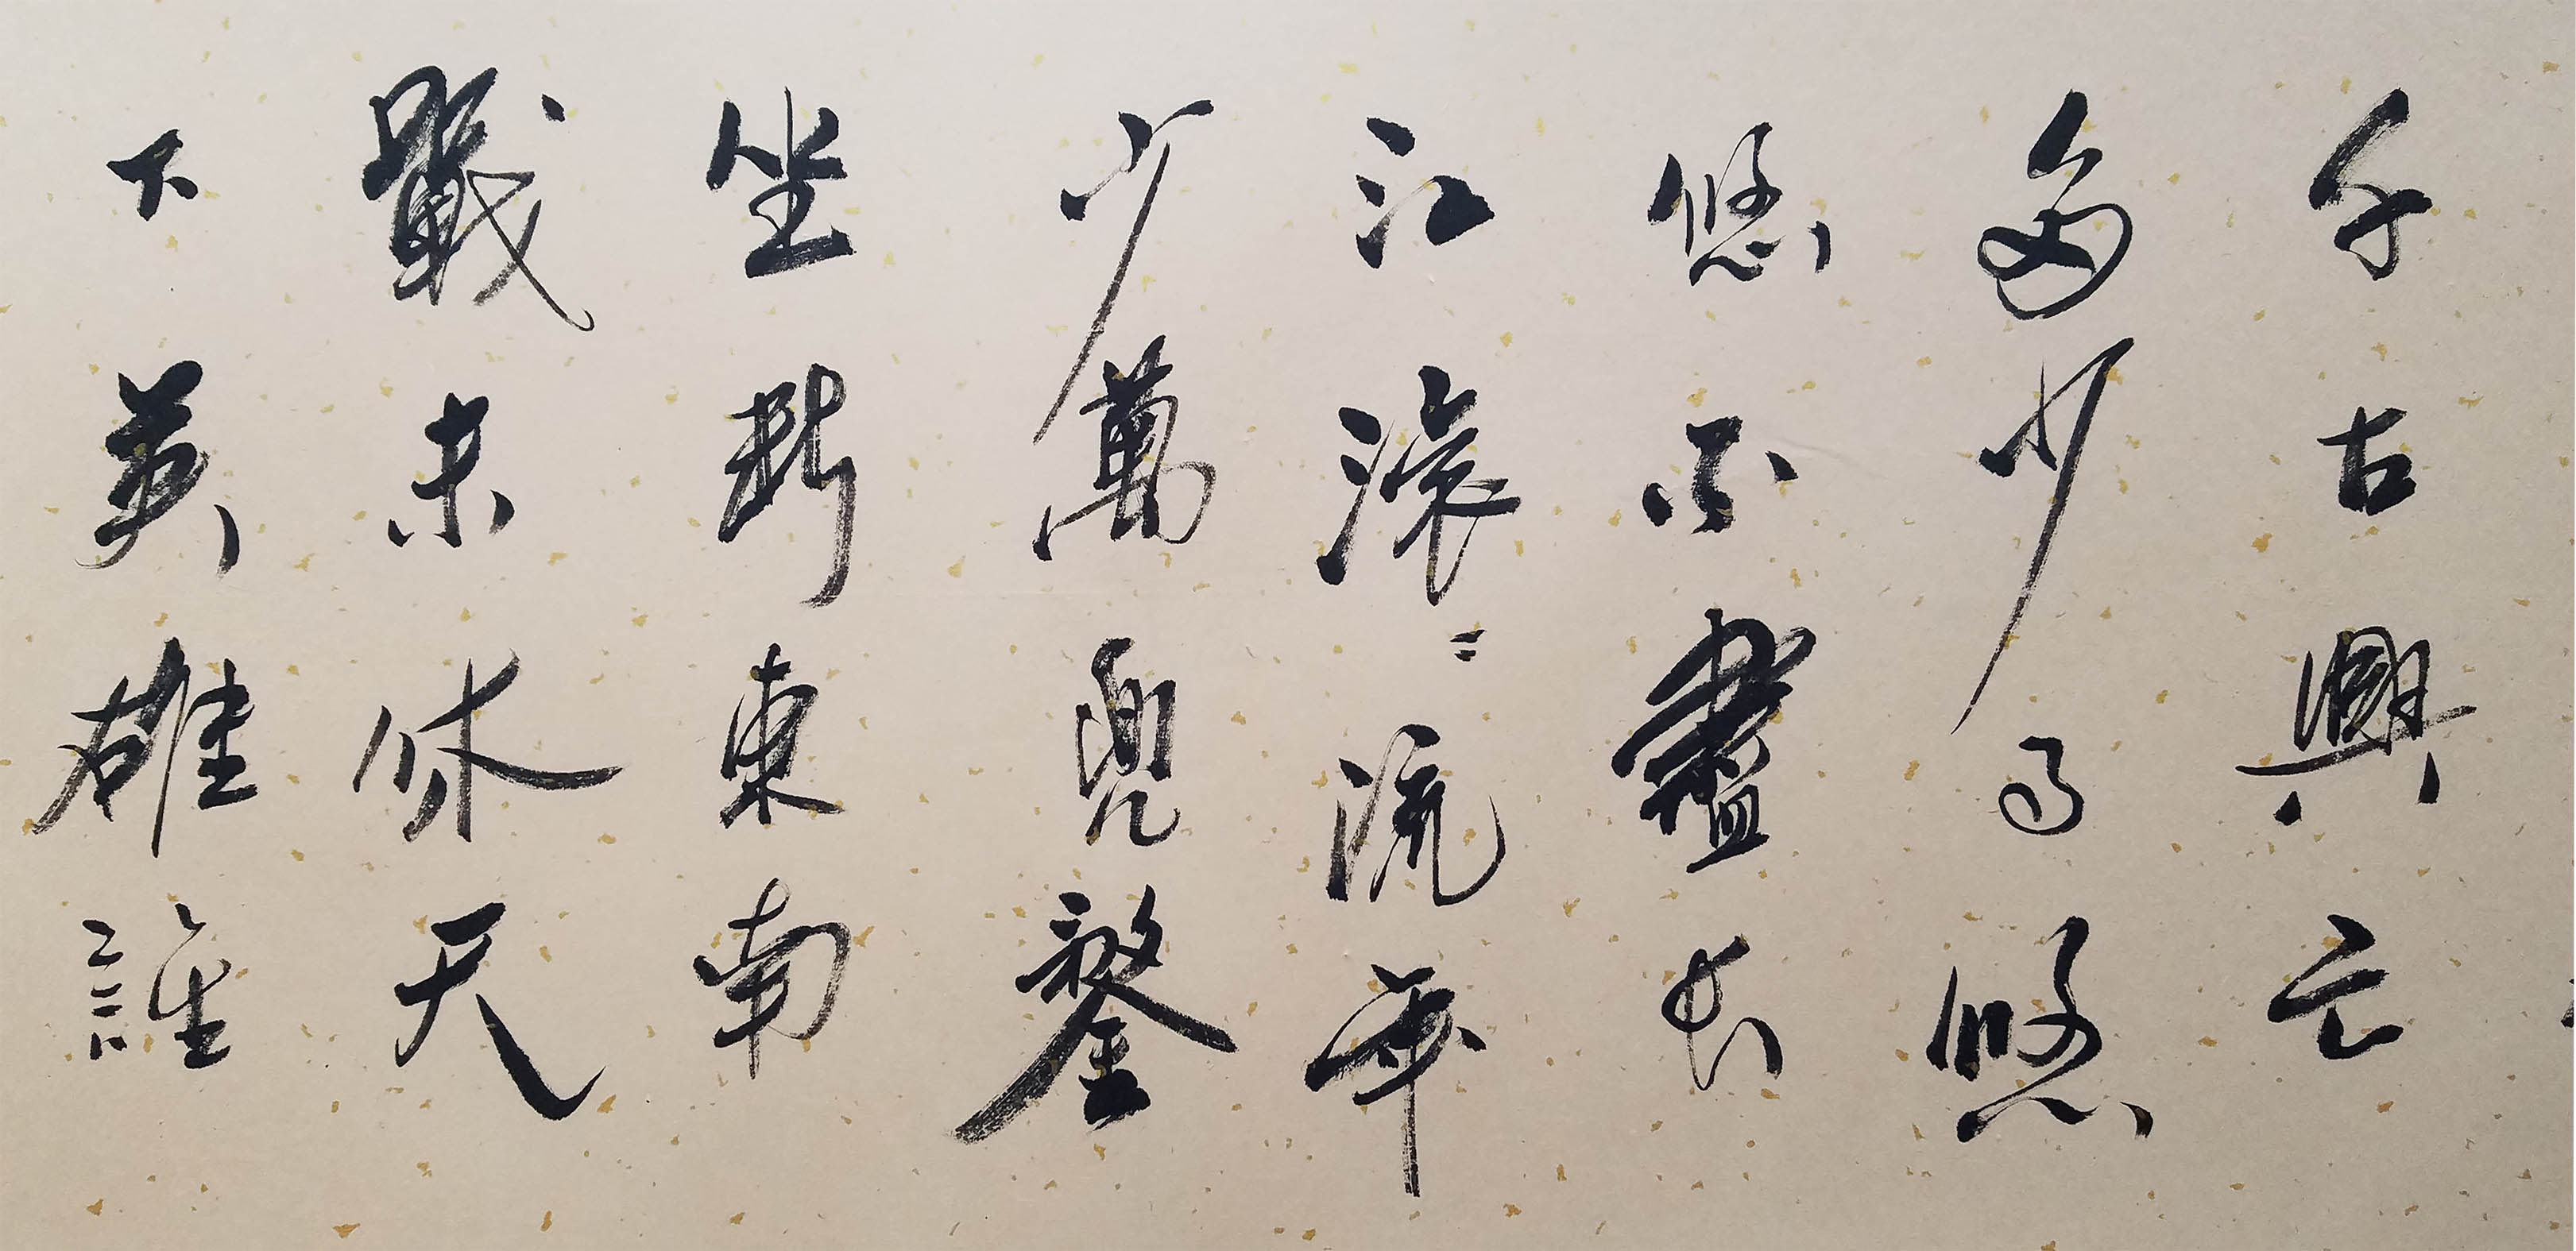 千古興亡
多少事悠
悠不盡長
江滾〻流年
少萬兜鍪
坐斷東南
戰未休天
下英雄誰